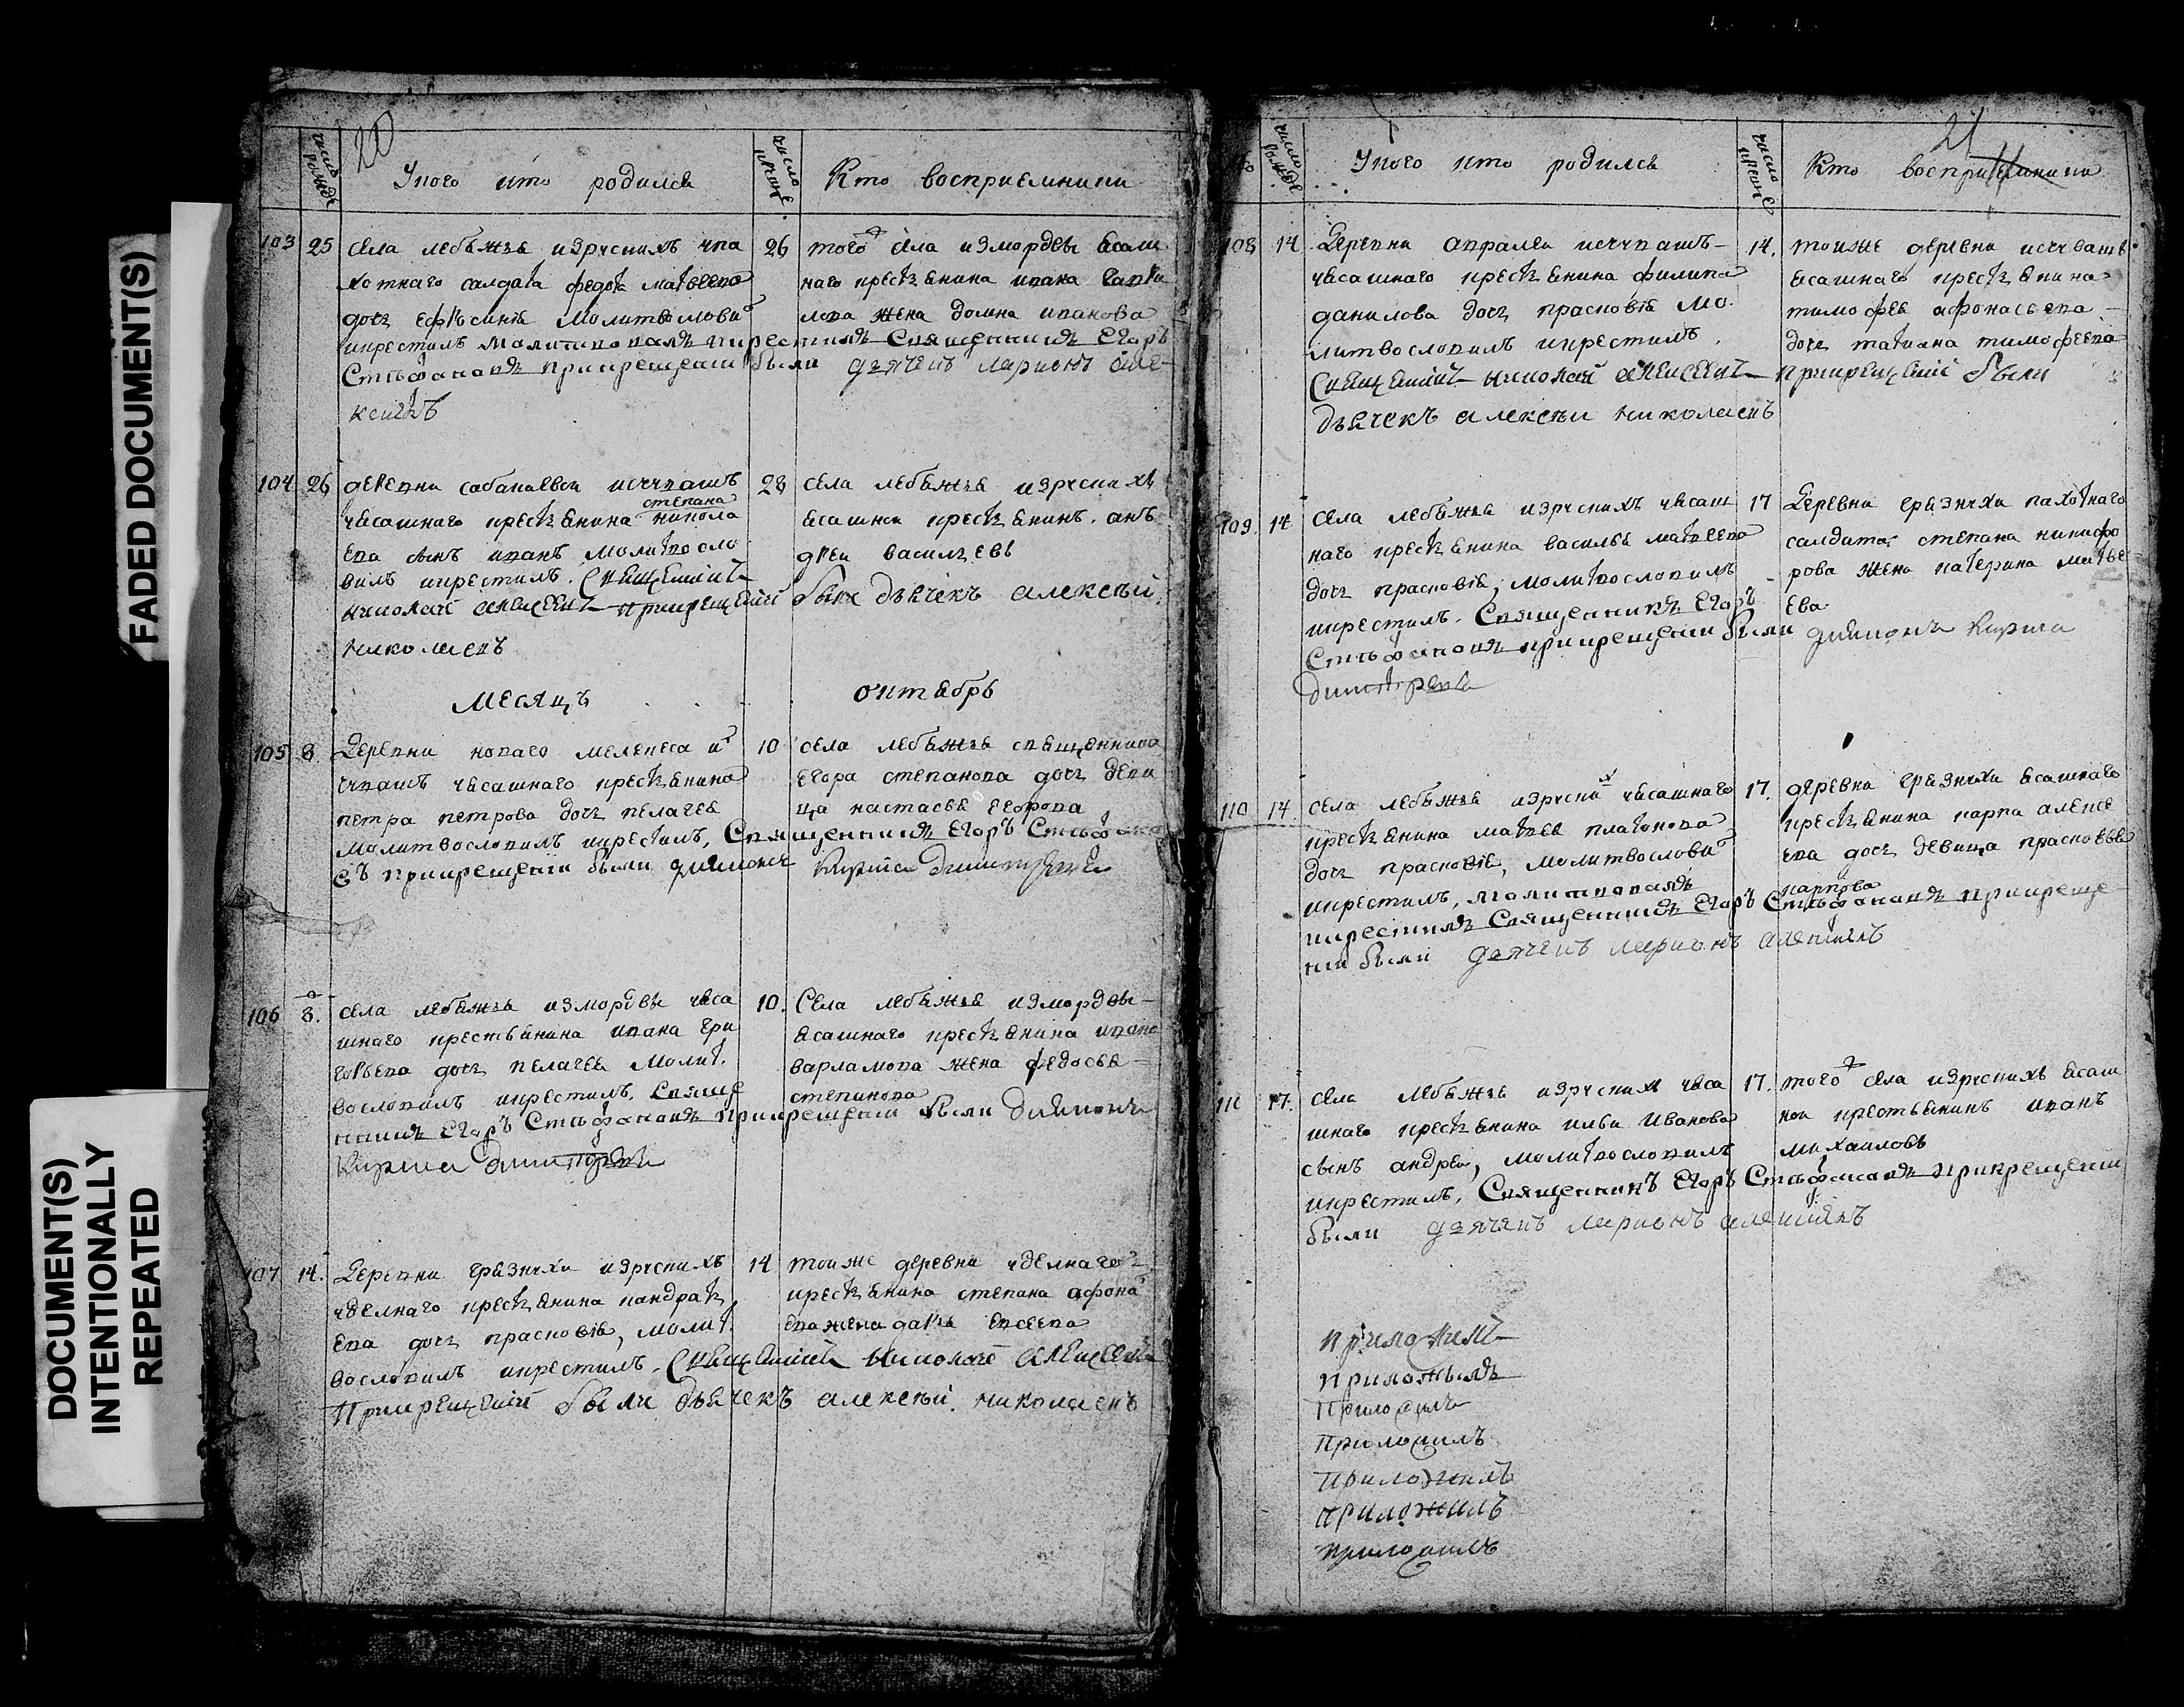 FADED DOCUMENT(S)
DOCUMENT(S)
INTENTIONALLY
REPEATED
20
число рожде
У кого кто родился
число креще
Кто восприемники
103 25 села лебяжья изруских ъ упа
хотнаго салдата федота матвеева
доч ефросиния молитвослови
и крестилъ молитвовалъ и крестилъ Священникъ Егоръ
Стефановъ при крещении были дьячекъ ларионъ але
ксеевъ
26 того села измордвы ясаш
наго крестьянина ивана
жена домна иванова
104 26 деревни сабакаевой исчувашъ
степана
уясашнаго крестьянина никола
ева сынъ иванъ молитвосло
вилъ и крестилъ. Священникъ
николай алексеевъ при крещении были дьячекъ алексей
николаевъ
28 села лебяжья изруских ъ
ясашной крестьянинъ ан
дреи васильевъ
месяцъ октябрь
105 8 Деревни новаго мелекеса и
счувашъ уясашнаго крестьянина
петра петрова доч пелагея
молитвословилъ и крестилъ, Священникъ Егоръ Стефано
въ при крещении были диаконъ Кирила Димитриевъ
10 села лебяжья священника
егора степанова доч деви
ца настасья егорова
106 8. села лебяжья измордвы уяса
шнаго крестьянина ивана гри
горьева доч пелагея молит
вословилъ и крестилъ. Священ
никъ Егоръ Стефановъ при крещении были диаконъ
Кирила Димитриевъ
10. Села лебяжья измордвы
ясашнаго крестьянина ивана
варламова жена федосья
степанова
107 14. Деревни грязнухи изруских ъ
уделнаго крестьянина кандрать
ева доч прасковия, молит
вословилъ и крестилъ. Священникъ николай алексеевъ
при крещении были дьячекъ алексей николаевъ
14 тоиже деревни уделнаго
крестьянина степана афона
ева жена дарья евсеева
21
число рожде
У кого кто родился
число креще
Кто восприемники
108 14 Деревни апралеи исчувашъ
уясашнаго крестьянина филипа
данилова доч прасковия мо
литвословилъ и крестилъ.
Священникъ николай алексеевъ при крещении были
дьячекъ алексеи николаевъ
14. тоиже деревни исчувашъ
ясашнаго крестьянина
тимофея афонасьева
доч татиана тимофеева
109 14 села лебяжья изруских ъ уясаш
наго крестьянина василья матвеева
доч прасковия, молитвословилъ
и крестилъ. Священникъ Егоръ
Стефановъ при крещении были диаконъ Кирила
Димитриевъ
17 Деревни грязнухи пахотнаго
салдата степана никифо
рова жена катерина матве
ева
110 14. села лебяжья изруских уясашнаго
крестьянина матвея платонова
доч прасковия, молитвослови
и крестилъ, молитвовалъ
и крестилъ Священникъ Егоръ Стефановъ при креще
нии были дьячекъ ларионъ алексеевъ
17. деревни грязнухи ясашнаго
крестьянина карпа алексе
ева доч девица прасковья
карпова
111 17. села лебяжья изруских уяса
шнаго крестьянина ильи Иванова
сынъ андреи, молитвословилъ
и крестилъ, Священникъ Егоръ Стефановъ при крещении
были дьячекъ ларионъ алексеевъ
17. того села изруских ъ ясаш
нои крестьянинъ иванъ
михаиловъ
приложилъ
приложилъ
приложилъ
приложилъ
приложилъ
приложилъ
приложилъ